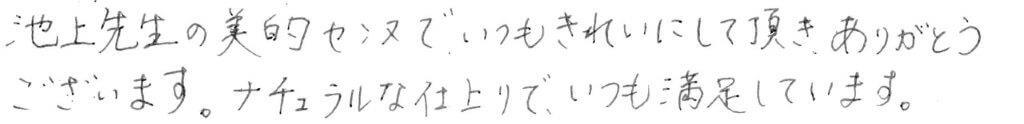 池上先生の美的センスで、いつもきれいにして頂き、ありがとう
ございます。ナチュラルな仕上りで、いつも満足しています。